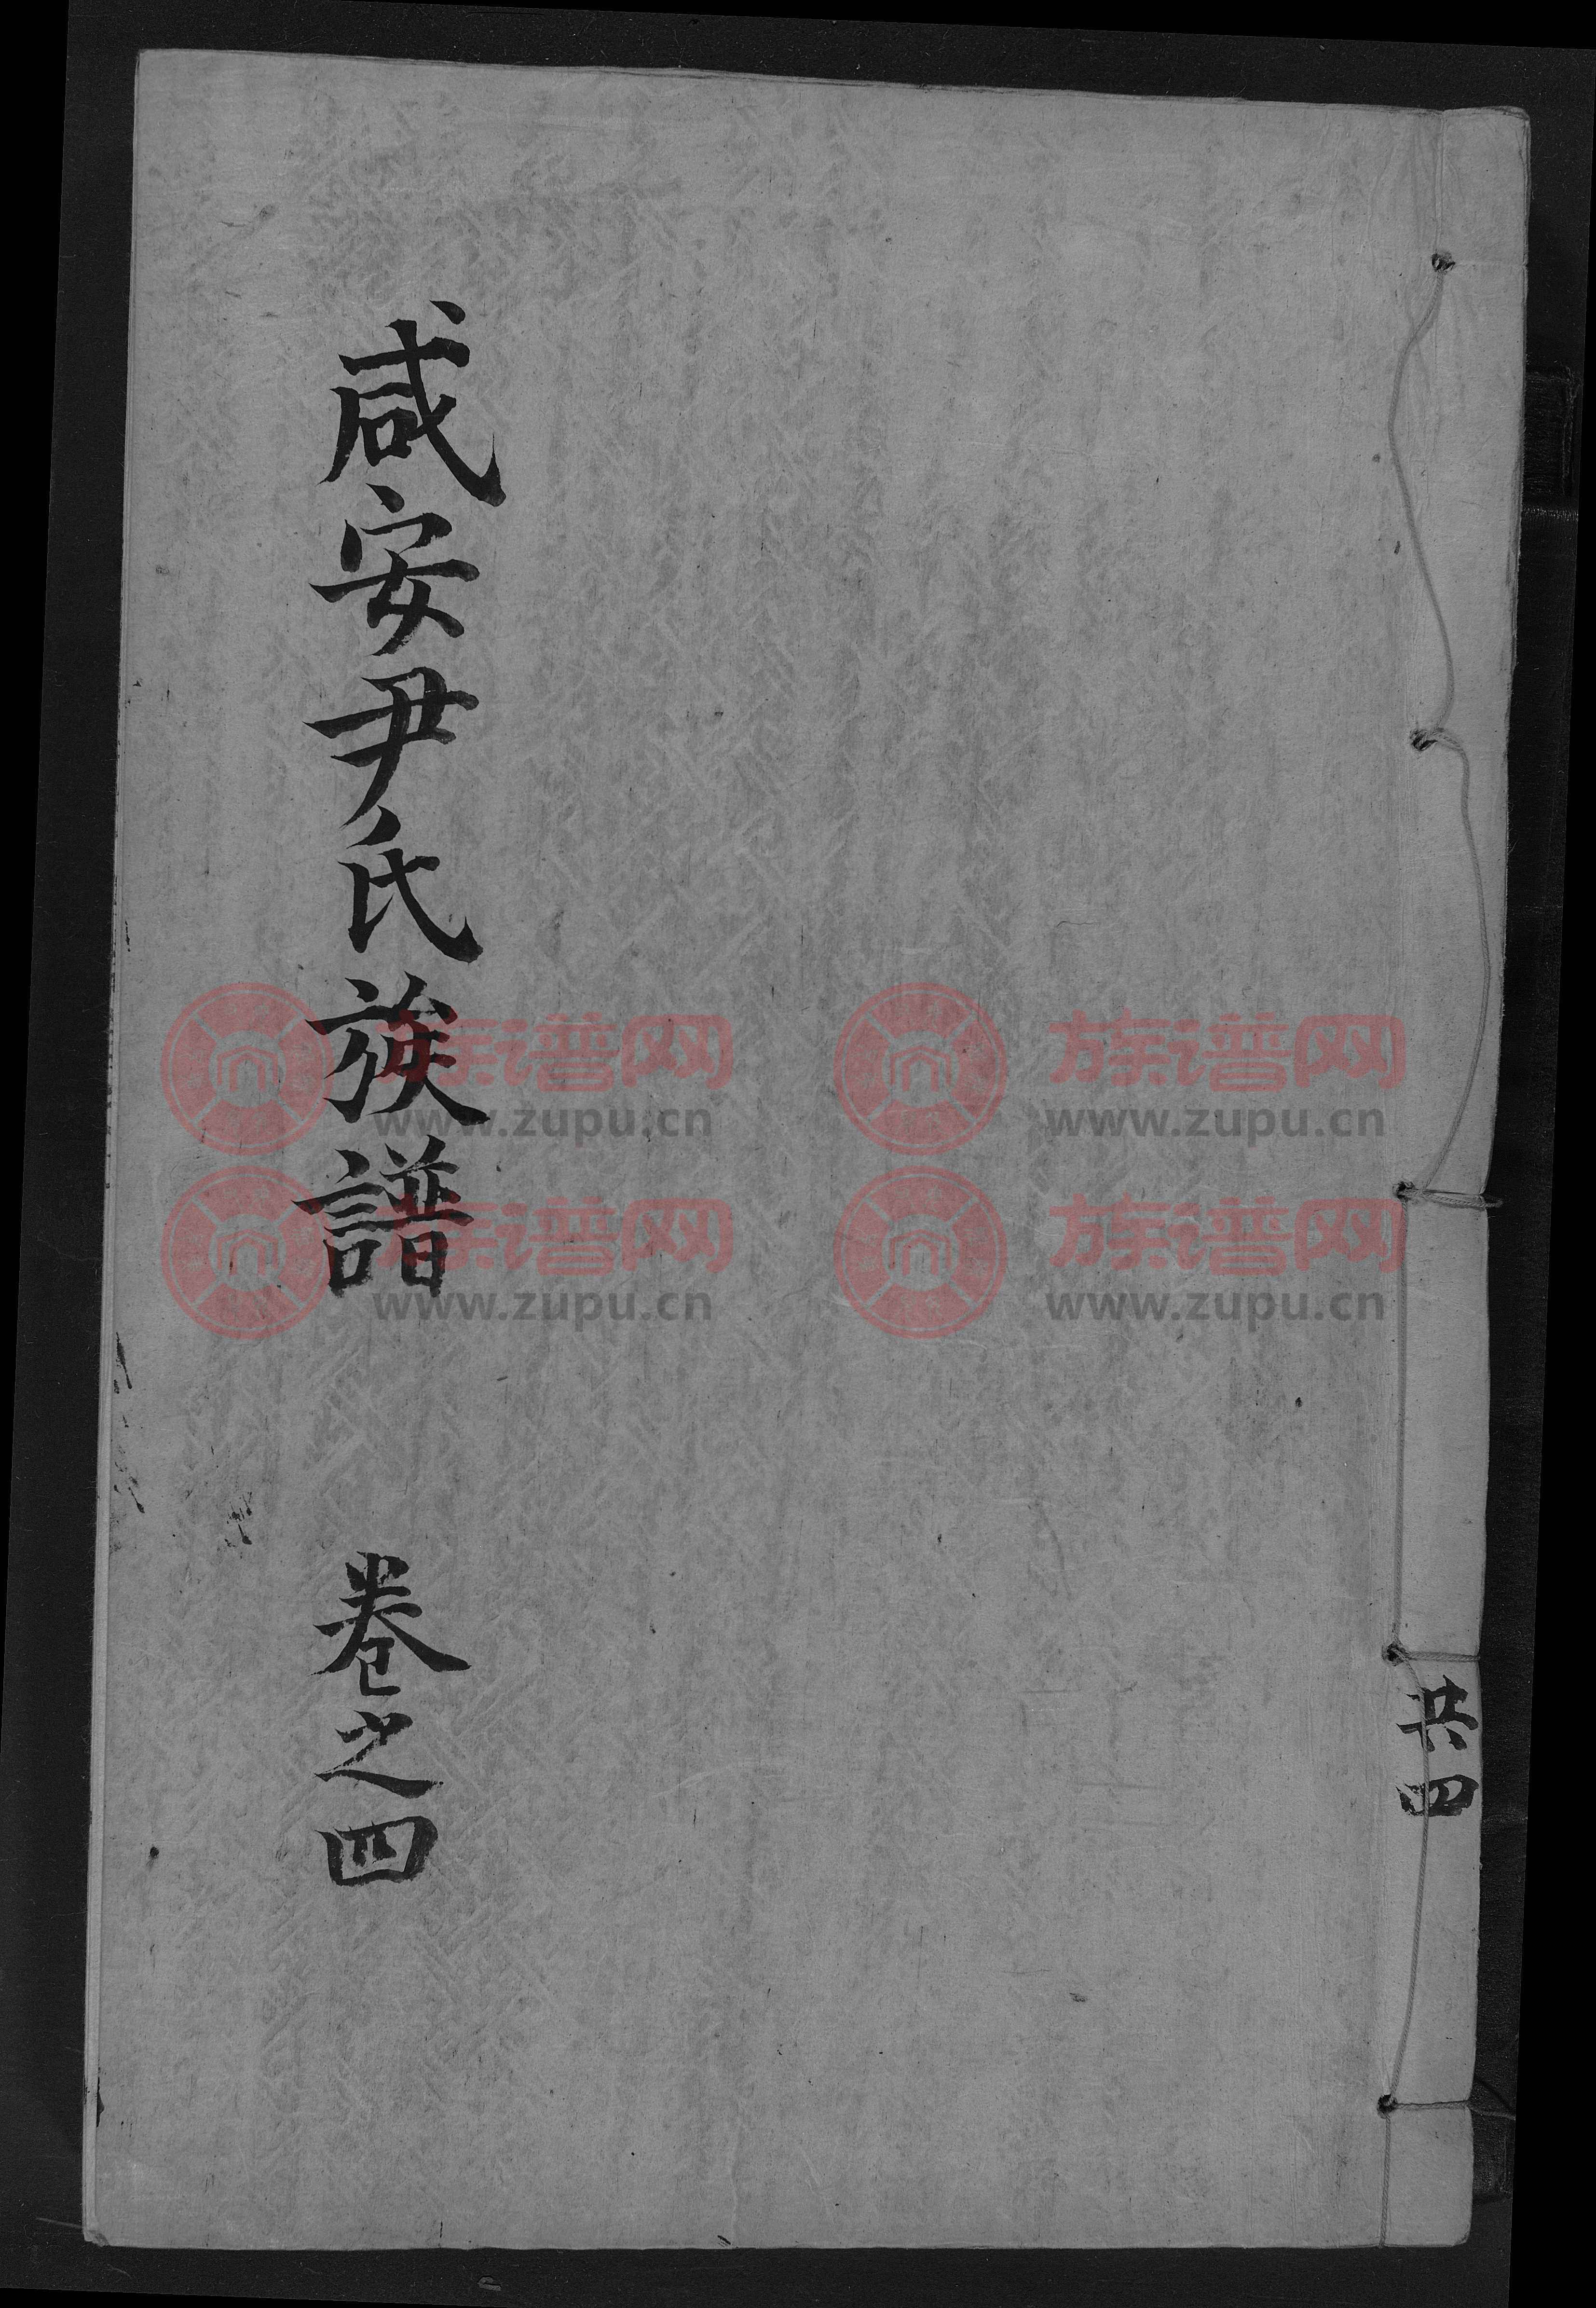 共四
咸安尹氏族譜 卷之四
族谱网 族谱网
www.zupu.cn www.zupu.cn
族谱网 族谱网
www.zupu.cn www.zupu.cn